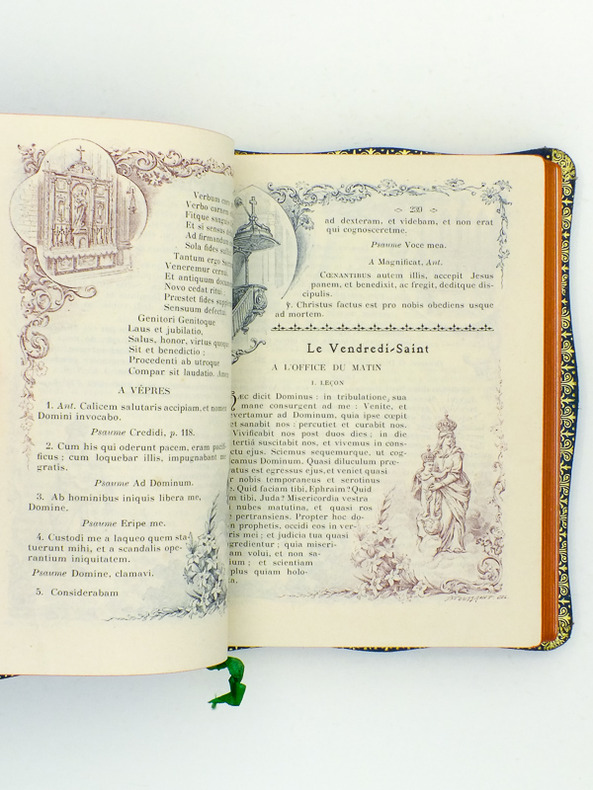 Verbum caro
Verbo carnem
Fitque sanguis
Et si sensus
Ad firmandum
Sola fides
Tantum ergo
Veneremur cernui
Et antiquum documentum
Novo cedat ritui
Præstet fides supplementum
Sensuum defectui
Genitori Genitoque
Laus et jubilatio,
Salus, honor, virtus quoque
Sit et benedictio ;
Procedenti ab utroque
Compar sit laudatio. Amen
A VÊPRES
1. Ant. Calicem salutaris accipiam, et nomen
Domini invocabo.
Psaume Credidi, p. 118.
2. Cum his qui oderunt pacem, eram pacificus ;
cum loquebar illis, impugnabant me
gratis.
Psaume Ad Dominum.
3. Ab hominibus iniquis libera me,
Domine.
Psaume Eripe me.
4. Custodi me a laqueo quem sta-
tuerunt mihi, et a scandalis ope-
rantium iniquitatem.
Psaume Domine, clamavi.
5. Considerabam
239
ad dexteram, et videbam, et non erat
qui cognosceret me.
Psaume Voce mea.
A Magnificat, Ant.
CŒNANTIBUS autem illis, accepit Jesus
panem, et benedixit, ac fregit, deditque dis-
cipulis.
℣. Christus factus est pro nobis obediens usque
ad mortem.
Le Vendredi-Saint
A L'OFFICE DU MATIN
I. LEÇON
HÆC dicit Dominus : in tribulatione sua
mane consurgent ad me : Venite, et
revertamur ad Dominum, quia ipse cepit
et sanabit nos : percutiet et curabit nos.
Vivificabit nos post duos dies ; in die
tertia suscitabit nos, et vivemus in cons-
pectu ejus. Sciemus sequemurque, ut cog-
noscamus Dominum. Quasi diluculum præ-
paratus est egressus ejus, et veniet quasi
imber nobis temporaneus et serotinus
terræ. Quid faciam tibi, Ephraim ? Quid
faciam tibi, Juda ? Misericordia vestra
quasi nubes matutina, et quasi ros
mane pertransiens. Propter hoc do-
lavi in prophetis, occidi eos in ver-
bis oris mei ; et judicia tua quasi
lux egredientur ; quia miseri-
cordiam volui, et non sa-
crificium ; et scientiam
Dei plus quiam holo-
causta.